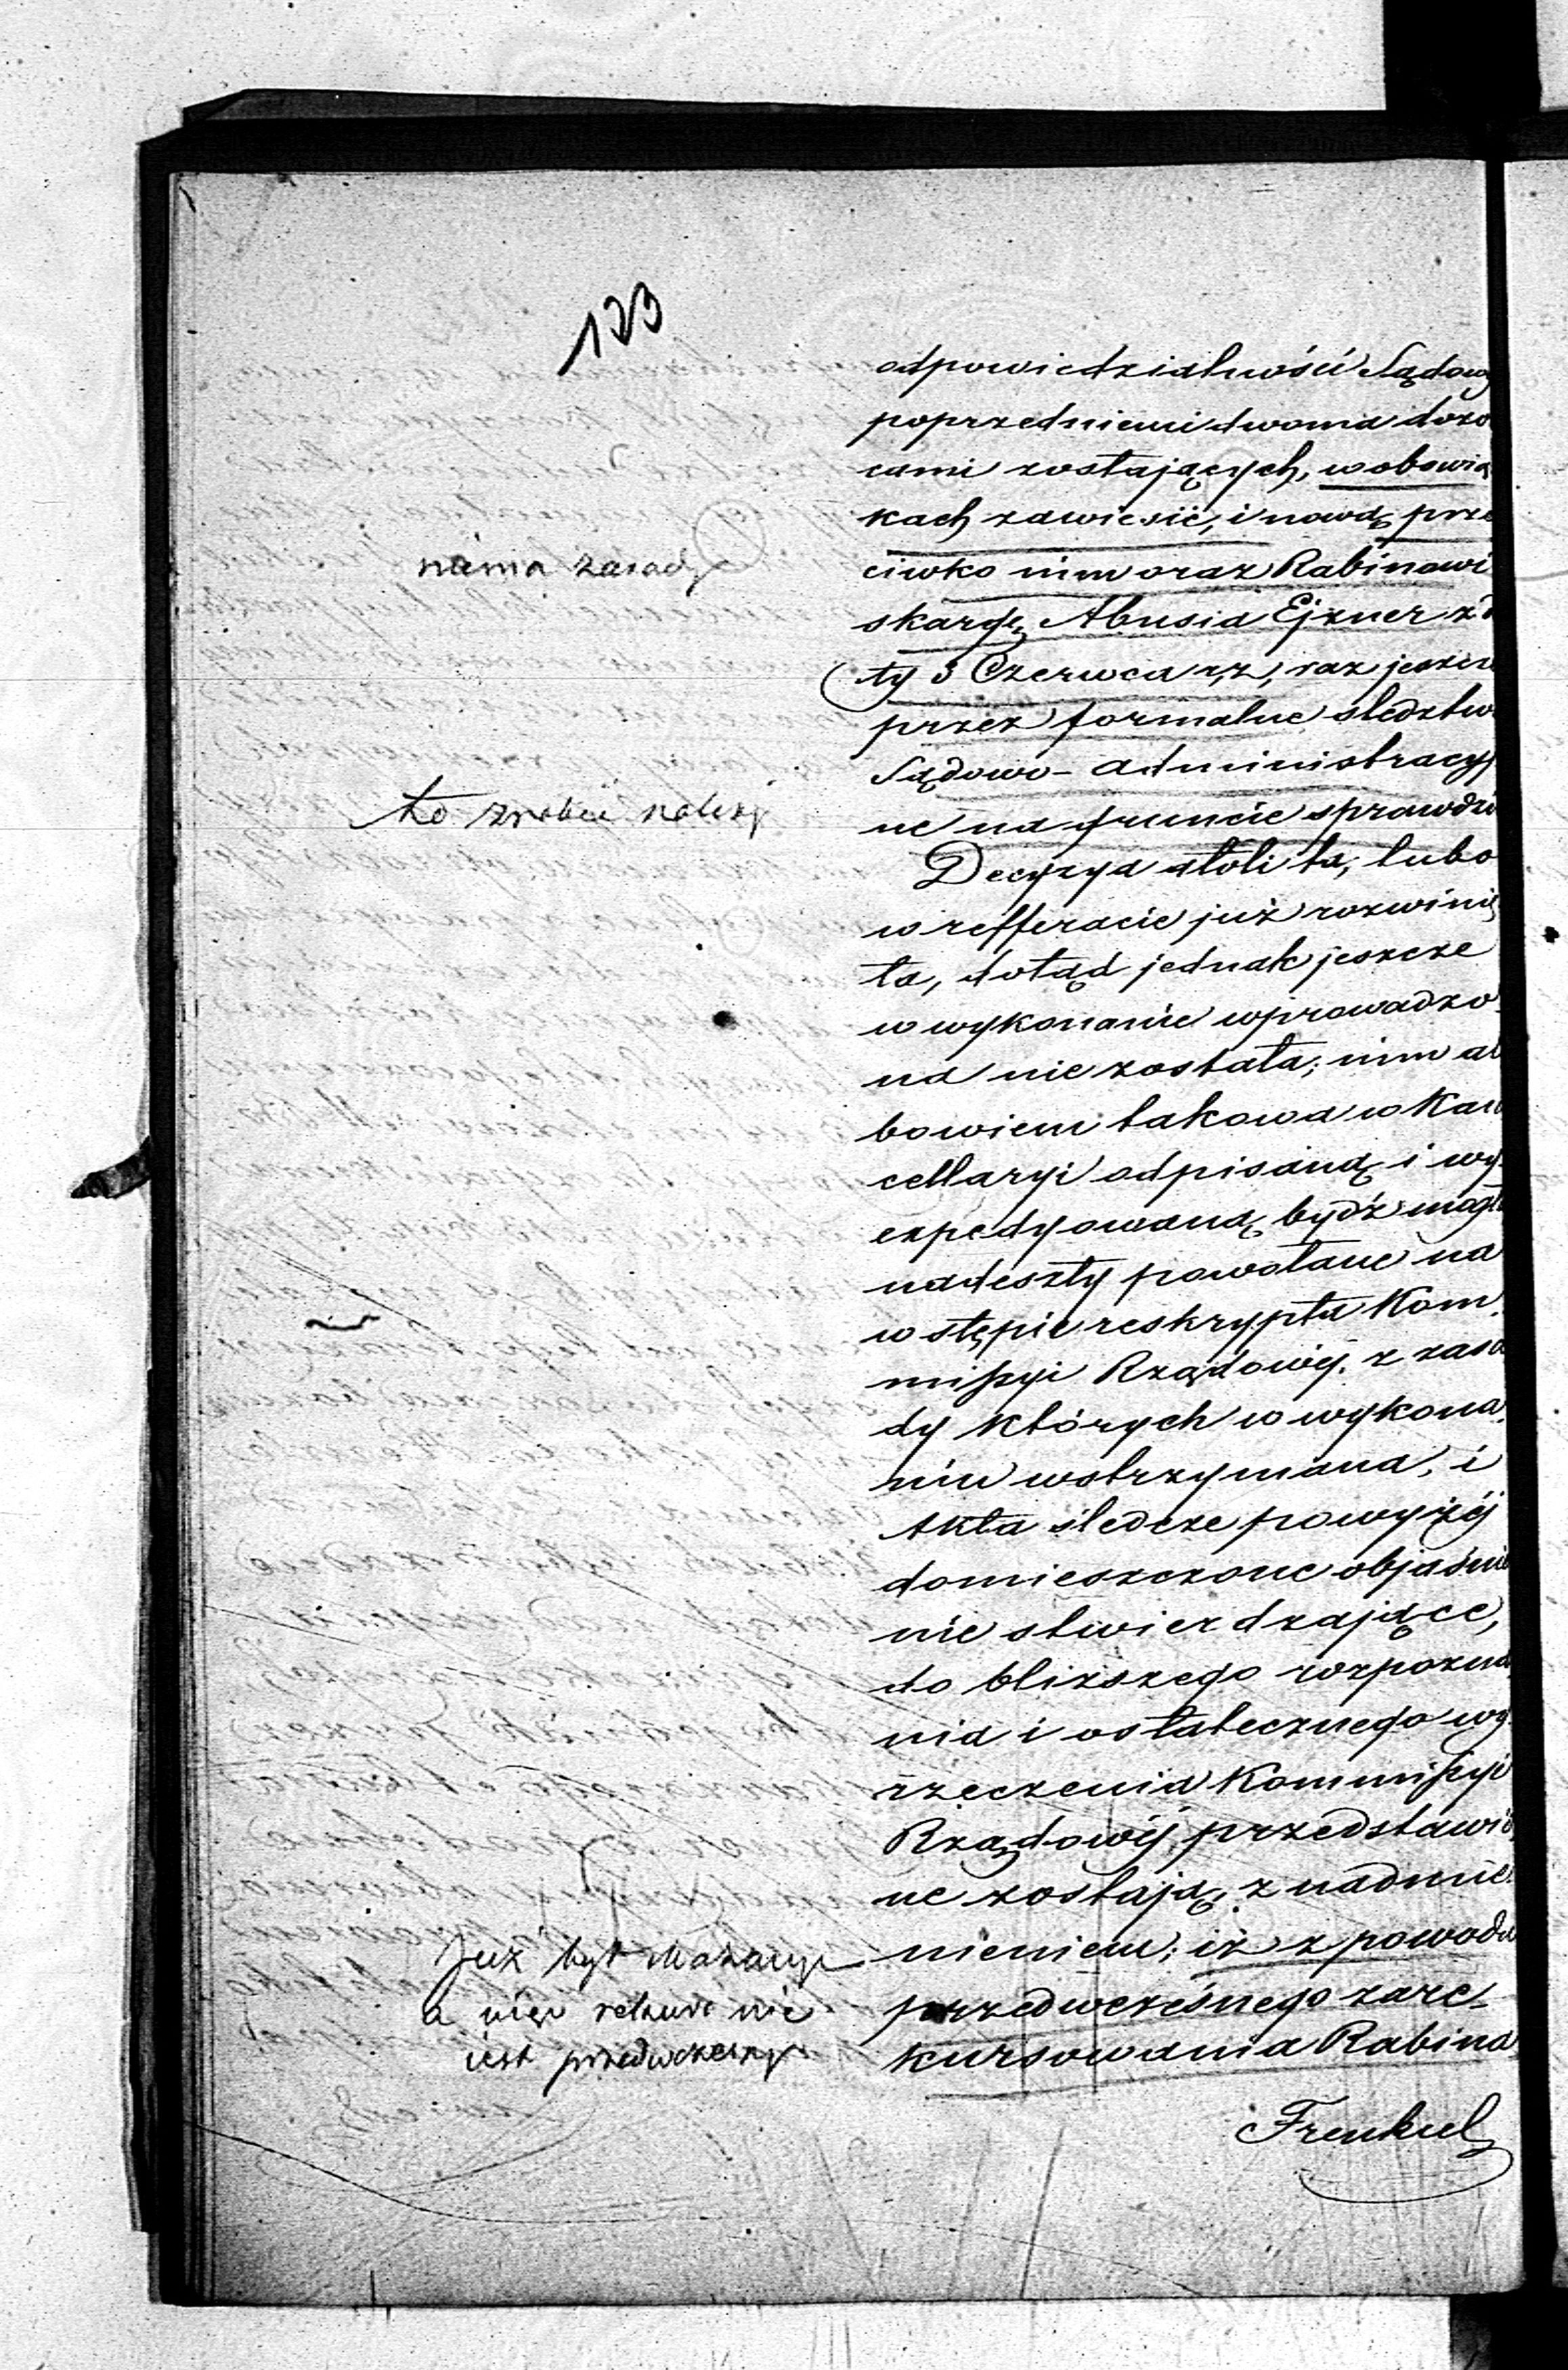 133
odpowiedzialności Sądow
poprzedniemi dwoma dozo
cami zostających, w obowią
kach zawiesić, i nową prze
niema zasady
ciwko nim oraz Rabinowi
skargę Abusia Ejzner z d
ty 3 Czerwca r, z, raz jeszcze
przez formalne śledztwo
Sądowo-administracyj
to zrobić należy
ne na gruncie sprawdzi
Decyzya atoli ta, lubo
w refferacie już rozwinię
ta, dotąd jednak jeszcze
w wykonanie wprowadzo
na nie została; nim al
bowiem takowa w Kan
cellaryi odpisaną i wy
expedyowaną bydź mogła
nadeszły powołane na
wstępie reskrypta Kom
missyi Rządowéj, z zasa
dy których w wykona
niu wstrzymana, i
Akta śledcze powyżéj
domieszczone objaśnie
nie stwierdzające,
do bliższego rozpozna
nia i ostatecznego wy
rzeczenia Kommissyi
Rządowéj przedstawio
ne zostają, z nadmie
nieniem, iż z powodu
przedwcześnego zare-
kursowania Rabina
Już był
a więc rekurs nie
jest przedwczesny
Frenkiel